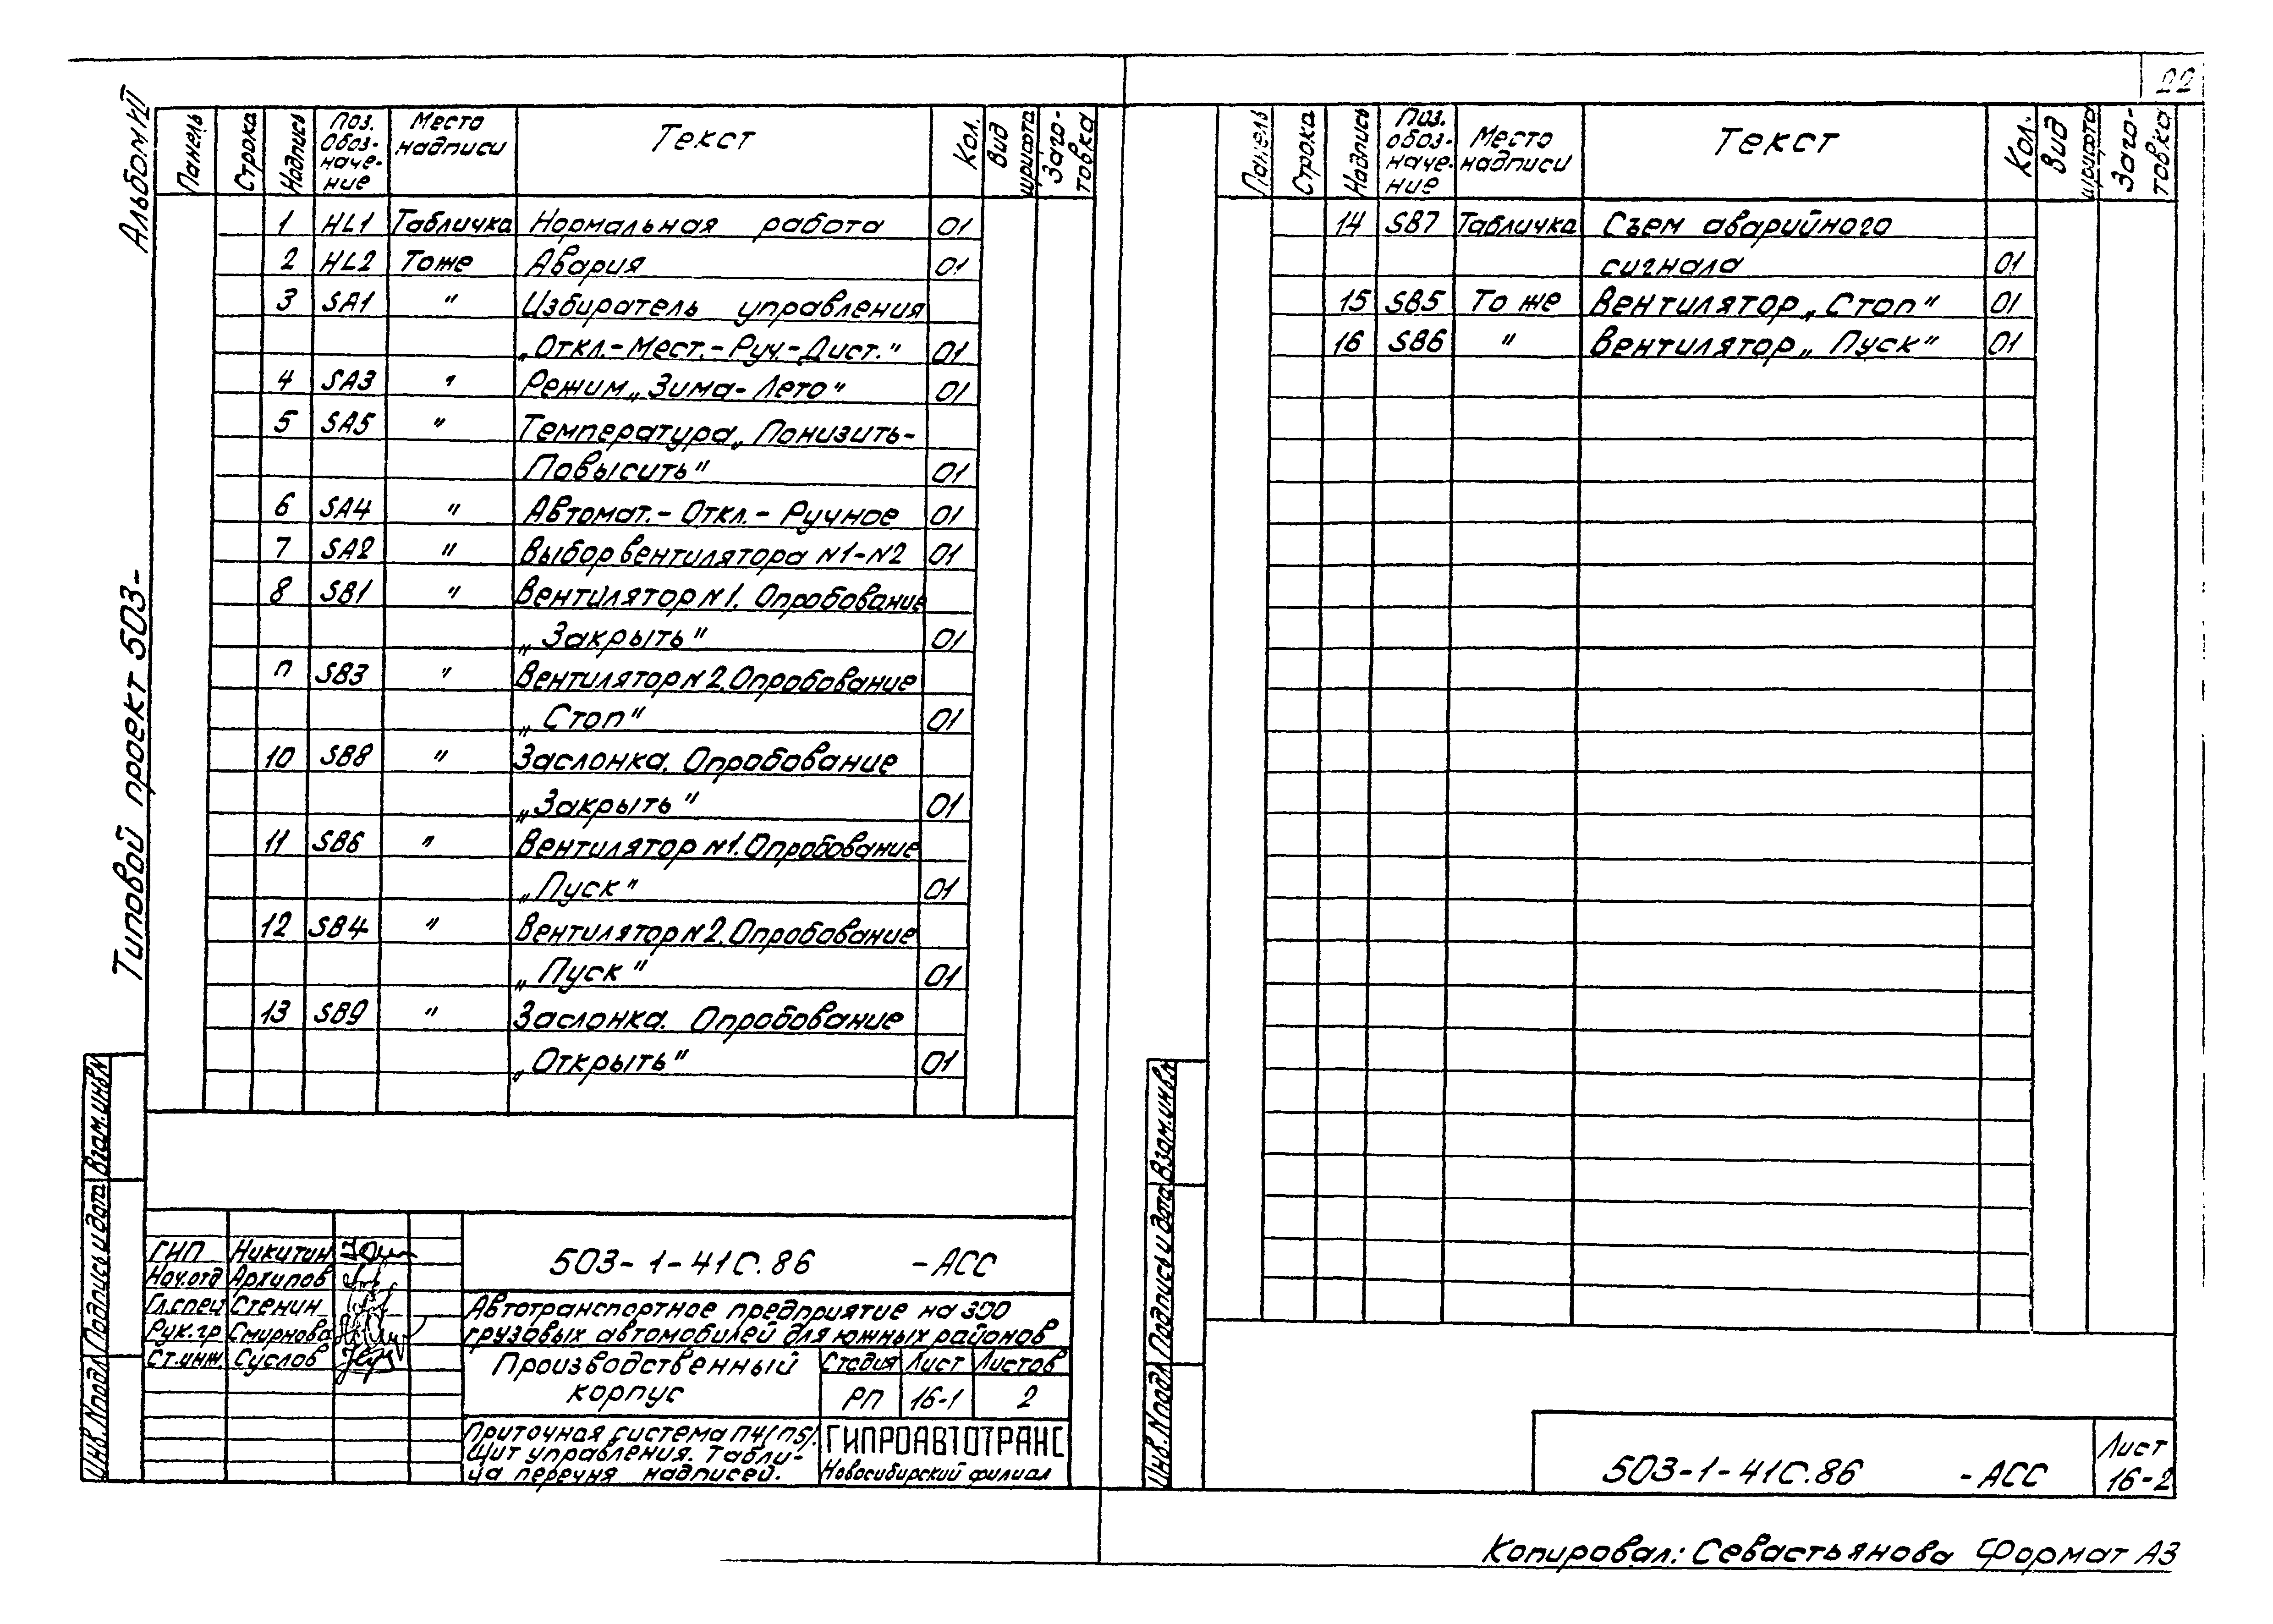 22
Альбом VII
Типовой проект 503-
Панель Строка Надпись Поз. Обоз-наче-ние Место надписи Текст Кол. Вид шрифта Заго-товка
1 HL1 Табличка Нормальная работа 01
2 HL2 То же Авария 01
3 SA1 " Избиратель управления
„Откл.-Мест.-Руч.-Дист." 01
4 SA3 " Режим „Зима-Лето" 01
5 SA5 " Температура „Понизить-
Повысить" 01
6 SA4 " Автомат.-Откл.-Ручное 01
7 SA2 " Выбор вентилятора N1-N2 01
8 SB1 " Вентилятор N1. Опробование
„Закрыть" 01
п SB3 " Вентилятор N2. Опробование
„Стоп" 01
10 SB8 " Заслонка. Опробование
„Закрыть" 01
11 SB6 " Вентилятор N1. Опробование
„Пуск" 01
12 SB4 " Вентилятор N2. Опробование
„Пуск" 01
13 SB9 " Заслонка. Опробование
„Открыть" 01
Инв.N подл. Подпись и дата Взам.инв.N
ГИП Никитин
Нач.отд Архипов
Гл.спец Стенин
Рук.гр Смирнова
Ст.инж Суслов
503-1-41С.86 -АСС
Автотранспортное предприятие на 300
грузовых автомобилей для южных районов
Производственный
корпус
Стадия Лист Листов
РП 16-1 2
Приточная система П4(П5).
Щит управления. Табли-
ца перечня надписей.
ГИПРОАВТОТРАНС
Новосибирский филиал
Панель Строка Надпись Поз. обоз-наче-ние Место надписи Текст Кол. Вид шрифта Заго-товка
14 SB7 Табличка Съем аварийного
сигнала 01
15 SB5 То же Вентилятор „Стоп" 01
16 SB6 " Вентилятор „Пуск" 01
Инв.N подл. Подпись и дата Взам.инв.N
503-1-41С.86 -АСС
Лист
16-2
Копировал: Севастьянова Формат А3